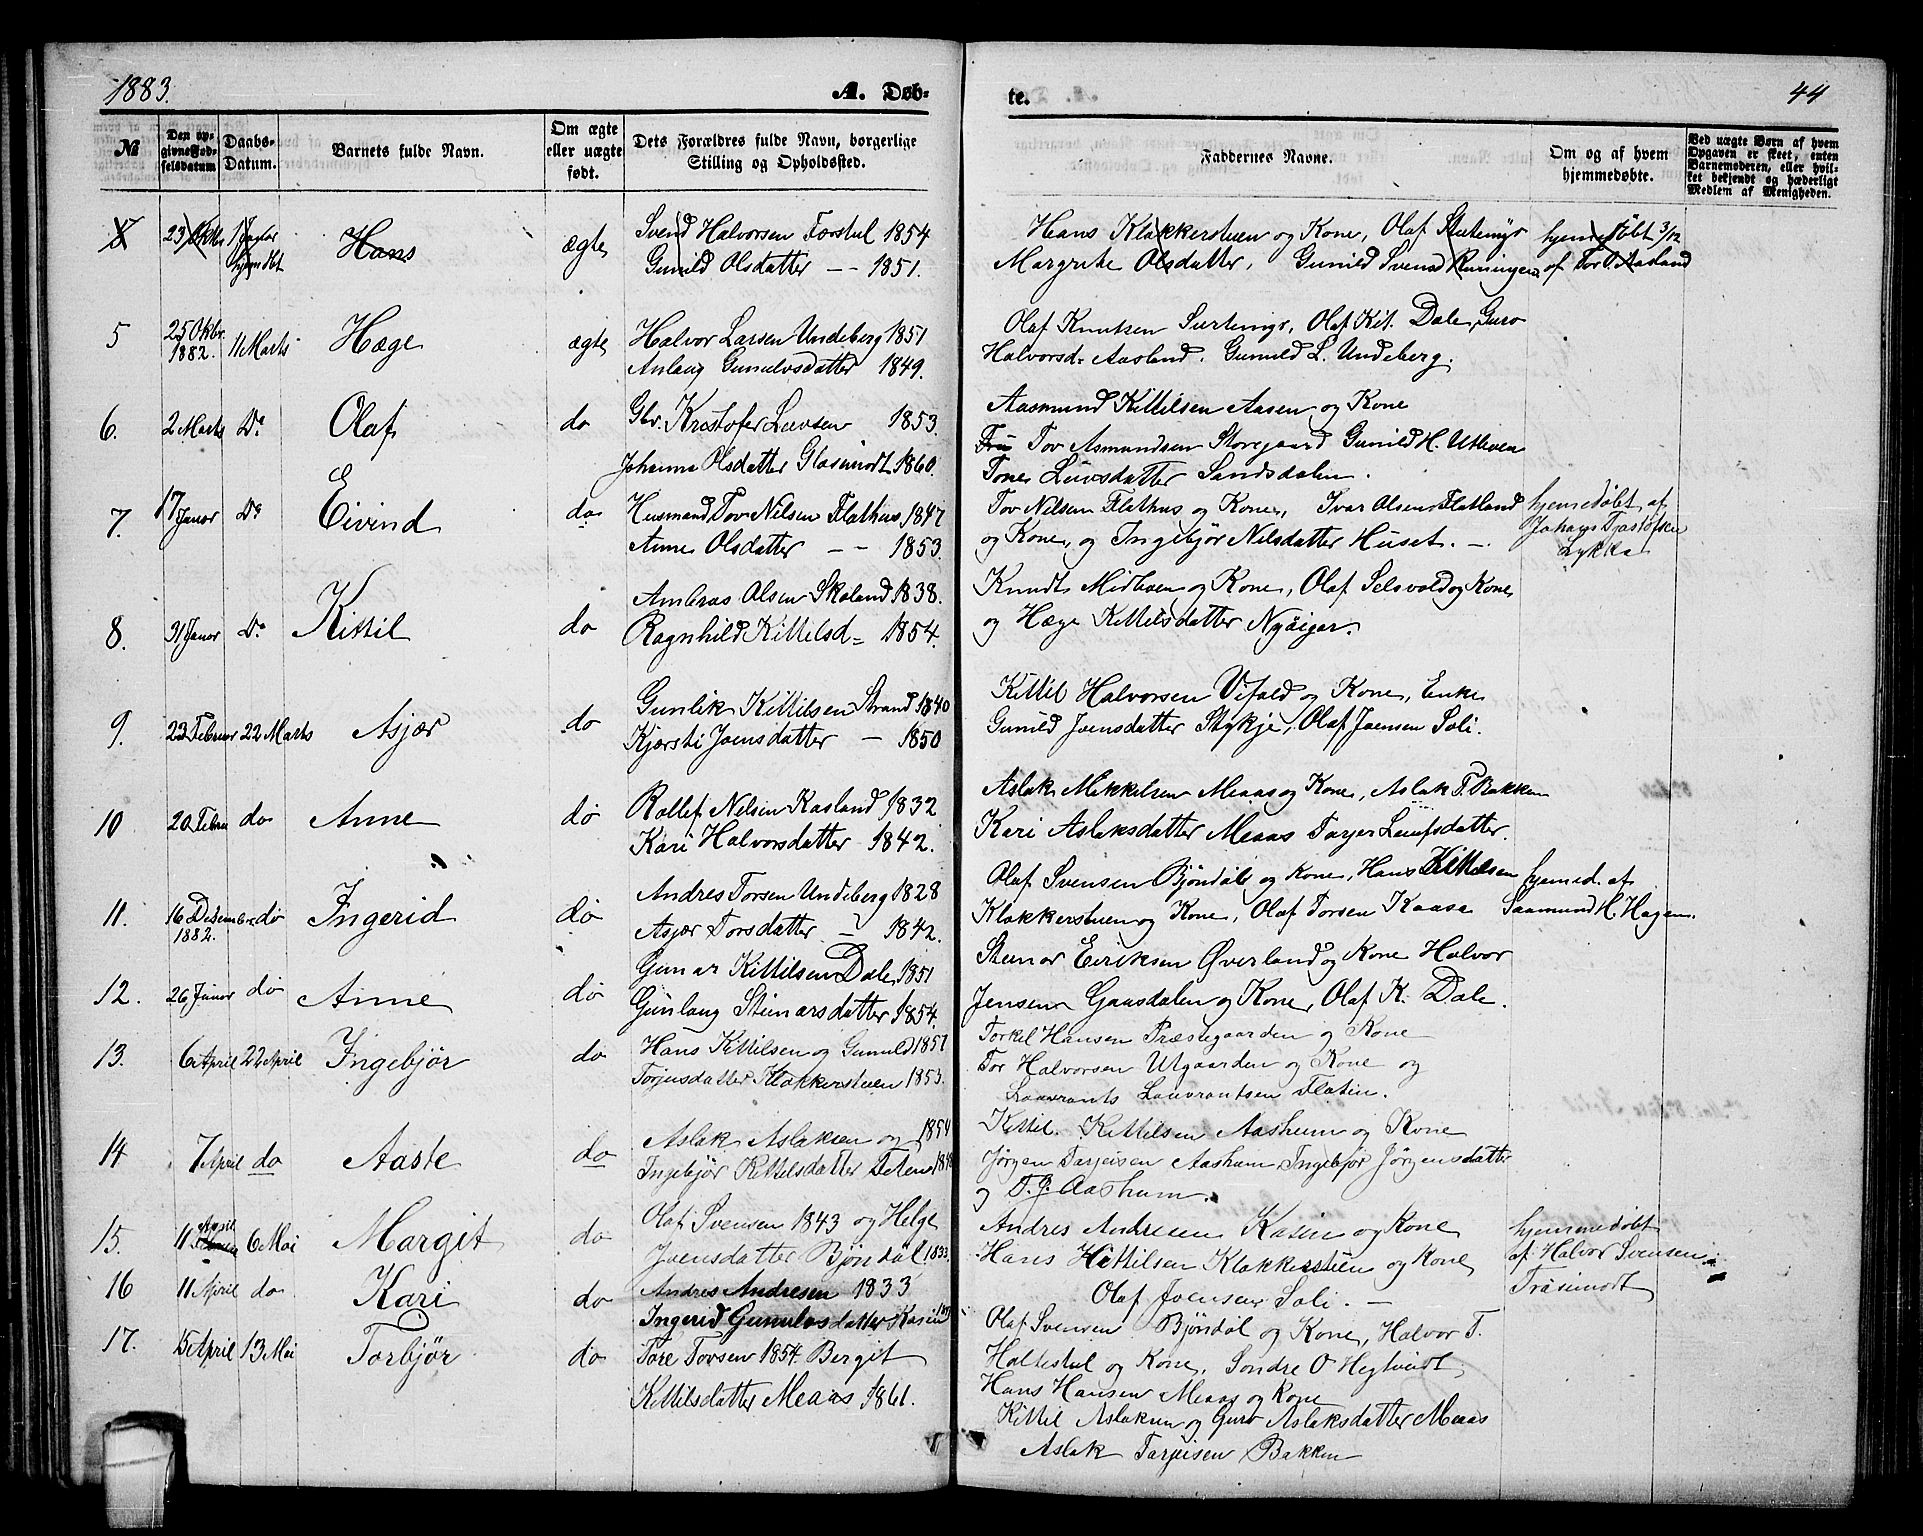 1883.
A. Døb-
te.
44
№
Den op-
givne Fød-
selsdatum
Daabs-
Datum.
Barnets fulde Navn.
Om ægte
eller uægte
født.
Dets Forældres fulde Navn, borgerlige
Stilling og Opholdssted.
Faddernes Navne.
Om og af hvem
hjemmedøbte.
Ved uægte Børn af hvem
Opgaven er skeet, enten
Barnemoderen, eller hvil-
ket bekjendt og hæderligt
Medlem af Menigheden.
23 Oktr 1 Janur
Hans
ægte
Svend Halvorsen Forstul 1854
Gunild Olsdatter — 1851.
Hans Klakkerstuen og Kone, Olaf
Margrete Olsdatter, Gunild Svensd
hjemmedøbt 3/12
af Tor O. Aasland
5
25 Oktbr.
1882.
11 Marts
Hæge
ægte
Halvor Larsen Undeberg 1851
Anlaug Gunulvsdatter 1849.
Olaf Knutsen Surtenigr, Olaf Kit. Dale, Guro
Halvorsd= Aasland. Gunild L. Undeberg.
6.
2 Marts
Do
Olaf
do
Gbr. Kristofer Leevsen 1853.
Johanna Olsdatter Glasimodt 1860.
Aasmund Kittilsen Aasen og Kone
Tov Asmundsen Storegaard Gunild H. Utleven
Tone Luvsdatter Sandsdalen.
7.
17 Janur
Do
Eivind
do
Husmand Tov Nilsen Flathus 1847
Anne Olsdatter — 1853.
Tov Nilsen Flathus og Kone, Ivar Olsen Flatland
og Kone, og Ingebjør Nilsdatter Huset. —
hjemedøbt af
Lykka
8.
31 Janur
Do
Kittil
do
Ambros Olsen Skoland 1838.
Ragnhild Kittilsd= 1854.
Knudt Midboen og Kone, Olaf Selsvold og Kone
og Hæge Kittilsdatter Nyåigar.
9.
23 Februar 22 Marts
Asjær
do
Gunlik Kittilsen Strand 1840
Kjærsti Joensdatter — 1850
Kittil Halvorsen Vifald og Kone, Enke
Gunild Joensdatter Stykje, Olaf Joensen Soli.
10
20 Febru
do
Anne
do
Rollef Nilsen Kasland 1832
Kari Halvorsdatter 1842.
Aslak Mikkelsen Meaas og Kone, Aslak T. Bakken
Kari Aslaksdatter Meaas Torjer Leufsdatter.
11.
16 Desember
1882.
do
Ingerid
do
Andres Torsen Undeberg 1828
Asjær Torsdatter — 1842.
Olaf Svensen Bjöndöl og Kone, Hans Kittilsen
Klakkerstuen og Kone, Olaf Torsen Kaasa
hjemed. af
Saamund H. Hagen.
12.
26 Janur
do
Anne
do
Gunar Kittilsen Dale 1851
Gunlaug Steinarsdatter 1854.
Steinar Eiriksen Øverland og Kone Halvor
Jensen Gaasdalen og Kone, Olaf K. Dale.
13.
6 April 22 April
Ingebjør
do
Hans Kittilsen og Gunuld 1857
Torjusdatter Klakkerstuen 1853.
Torkel Hansen Præstegaarden og Kone
Tor Halvorsen Utgaarden og Kone og
Laavrants Lauvrantsen Flatin.
14
7 April do
Aaste
do
Aslak Aslaksen og 1854
Ingebjør Kittilsdatter Teten
Kittil Kittilsen Aashum og Kone
Jørgen Tarjeisen Aasham, Ingebjør Jørgensdatter
og T. J. Aashum.
15.
11 April 6 Mai
Margit
do
Olaf Svensen 1843 og Helge
Joensdatter Bjøndal 1833.
Andres Andresen Kasin og Kone
Hans Kittilsen Klakkerstuen og Kone
Olaf Joensen Soli. —
hjemmedøbt
af Halvor Svensen
Träsimodt
16
11 April do
Kari
do
Andres Andresen 1833
Ingerid Gunulvsdatter Kasin
Olaf Svensen Bjøndøl og Kone, Halvor T.
Holtestul og Kone, Sondre O Hegtvedt
17.
15 April 13 Mai
Torbjør
do
Tore Tovsen 1854. Bergit
Kittilsdatter Meaas 1861.
Hans Hansen Meaas og Kone
Kittil Aslaksen og Guro Aslaksdatter Meaas
Aslak Tarjeisen Bakken